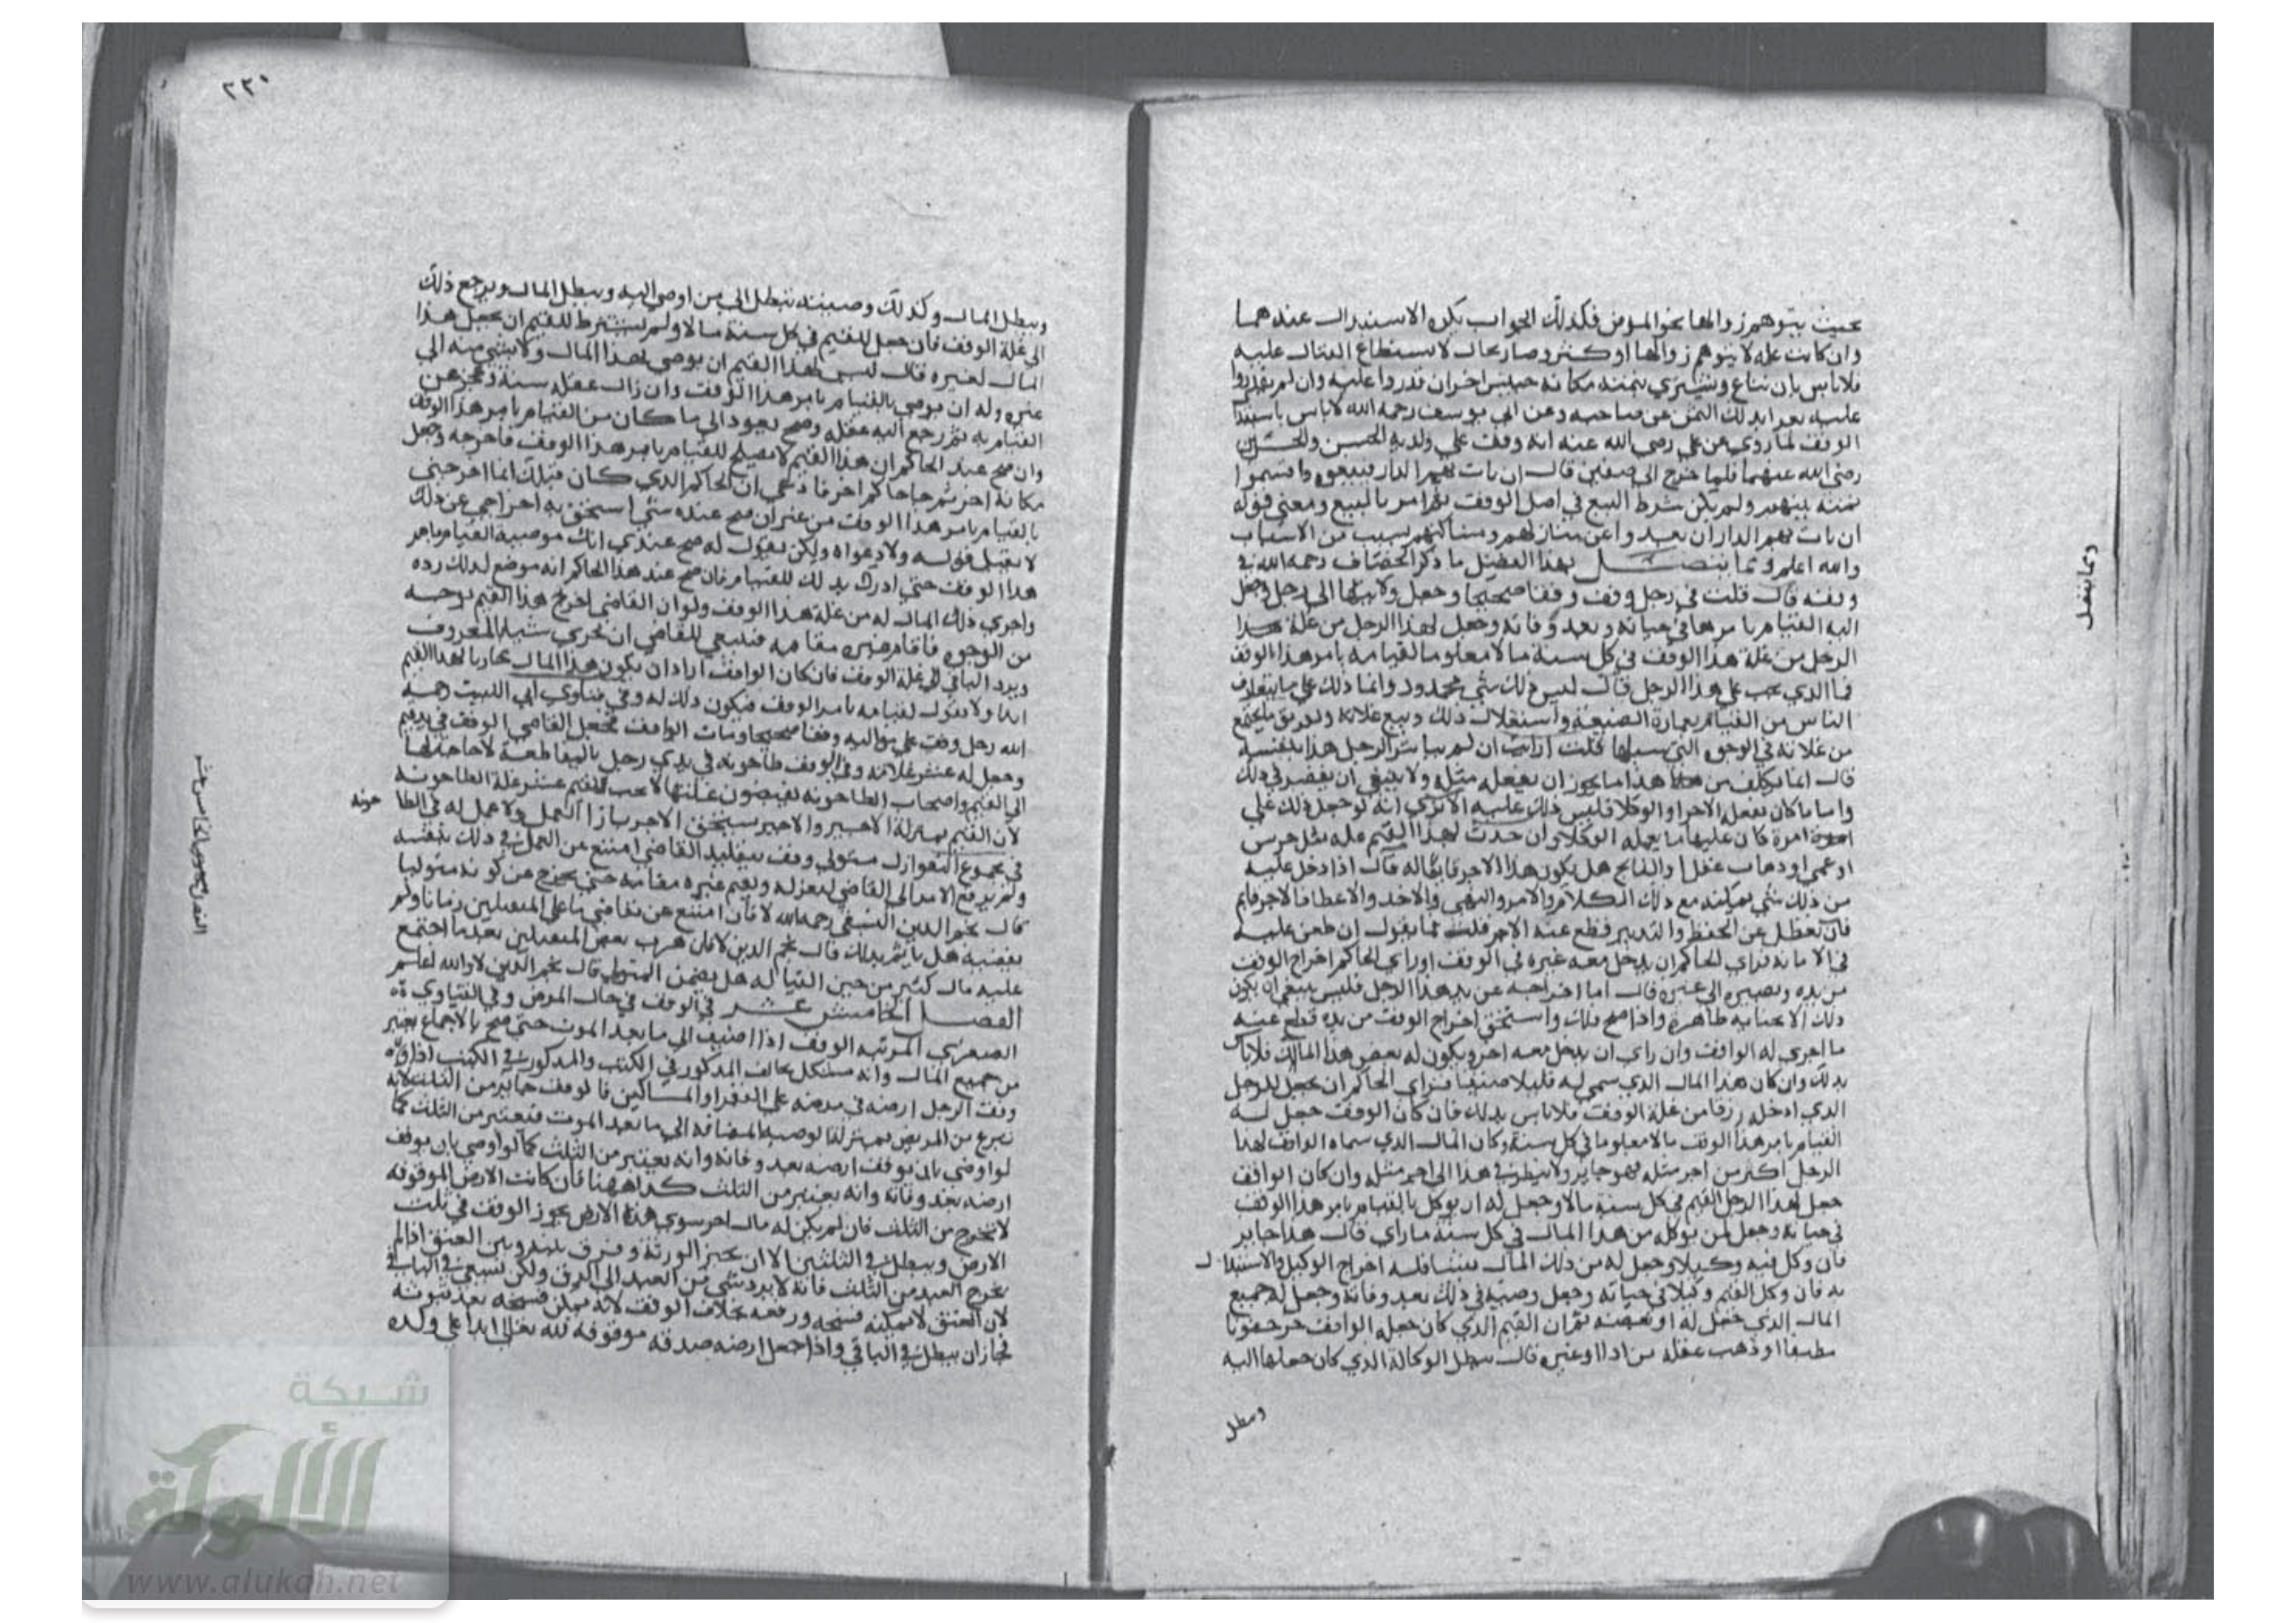 بحيث يتوهم زوالها نحو المرض فكذلك الجواب يكره الاستبدال عندهما
وان كانت علة لا يتوهم زوالها او كثر وصار بحال لا يستطاع القتال عليه
فلا باس بان تباع ويشتري بثمنه مكانه حبيس اخر ان قدروا عليه وان لم يقدروا
عليه بذلك الثمن عن صاحبه وعن ابي يوسف رحمه الله لا باس باستبدال
الوقف لما روي عن علي رضى الله عنه انه وقف علي ولديه الحسن والحسين
رضى الله عنهما فلما خرج الى صفين قال ان بات بهم الدار فبيعوه واقسموا
ثمنه بينهم ولم يكن شرط البيع في اصل الوقف ثم امر بالبيع ومعنى قوله
ان بات بهم الدار ان بعدوا عن منازلهم ومساكنهم بسبب من الاسباب
والله اعلم ومما يتصل بهذا الفصل ما ذكر الخصاف رحمه الله في
وقفه قال قلت في رجل وقف وقفا صحيحا وجعل ولايتها الى رجل وجعل
اليه القيام بامرها في حياته وبعد وفاته وجعل لهذا الرجل من غلة هذا
الرجل من غلة هذا الوقف في كل سنة مالا معلوما لقيامه بامر هذا الوقف
فما الذي يجب علي هذا الرجل قال ليس في ذلك شي محدود وانما ذلك علي ما يتعارف
الناس من القيام بعمارة الضيعة واستغلال ذلك وبيع غلاته وتفريق ما يجتمع
من غلاته في الوجوه التي سبلها قلت ارايت ان لم يباشر الرجل هذا بنفسه
قال انما يكلف من هذا ما يجوز ان يفعله مثله ولا ينبغي ان يقصر في ذلك
واما ما كان يفعل الاجراء والوكلا فليس ذلك عليه الا ترى انه لو جعل ذلك علي
امرة كان عليها ما يعمله الوكلاء وان حدث لهذا القيم علة مثل خرس
او عمي او ذهاب عقل او الفالج هل يكون هذا الاجر قايما له قال اذا دخل عليه
من ذلك شي يمكنه مع ذلك الكلام والامر والنهى والاخذ والاعطا فالاجر قايم
فان تعطل عن الحفظ والتدبير قطع عنه الاجر قلت فما يقول ان طعن عليه
في الامانة فراي الحاكم ان يدخل معه غيره في الوقف او راي الحاكم اخراج الوقف
من يده وتصييره الى غيره قال اما اخراجه عن يد هذا الرجل فليس ينبغي ان يكون
ذلك الا بخيانة ظاهرة واذا صح ذلك واستحق اخراج الوقف من يده قطع عنه
ما اجري له الواقف وان راي ان يدخل معه اخر ويكون له بعض هذا المال فلا باس
بذلك وان كان هذا المال الذي سمي له قليلا ضيقا فراى الحاكم ان يجعل للرجل
الذي ادخله رزقا من غلة الوقف فلا باس بذلك فان كان الوقف جعل له
القيام بامر هذا الوقف مالا معلوما في كل سنة وكان المال الذي سماه الواقف لهذا
الرجل اكثر من اجر مثله فهو جايز ولا ينظر في هذا الى اجر مثله وان كان الواقف
جعل لهذا الرجل القيم في كل سنة مالا وجعل له ان يوكل بالقيام بامر هذا الوقف
في حياته وجعل لمن يوكله من هذا المال في كل سنة ما راي قال هذا جايز
فان وكل فيه وكيلا وجعل له من ذلك المال شيئا فله اخراج الوكيل والاستبدال
به فان وكل القيم وكيلا في حياته وجعل وصيه في ذلك بعد وفاته وجعل له جميع
المال الذي جعل له او بعضه ثم ان القيم الذي كان جعله الواقف جن جنونا
مطبقا او ذهب عقله من اذا او غيره قال تبطل الوكالة الذي كان جعلها اليه
وبطل
ومما يتصل
٢٢٠
ويبطل المال وكذلك وصيته تبطل الى من اوصي اليه ويبطل المال ويرجع ذلك
الي غلة الوقف فان جعل للقيم في كل سنة مالا ولم يشترط للقيم ان يجعل هذا
المال لغيره قال ليس لهذا القيم ان يوصي بهذا المال ولا بشي منه الي
غيره وله ان يوصي بالقيام بامر هذا الوقف وان زال عقله سنة وعجز عن
القيام به ثم رجع اليه عقله وصح يعود الى ما كان من القيام بامر هذا الوقف
وان صح عند الحاكم ان هذا القيم لا يصلح للقيام بامر هذا الوقف فاخرجه وجعل
مكانه اخر ثم جا حاكم اخر فادعي ان الحاكم الذي كان قبلك انما اخرجني
بالقيام بامر هذا الوقف من غير ان صح عنده شي استحق به اخراجي عن ذلك
لا يقبل قوله ولا دعواه ولكن يقول له صح عندي انك موضع القيام بامر
هذا الوقف حتي اردك بذلك للقيام فان صح عند هذا الحاكم انه موضع لذلك رده
واجري ذلك المال له من غلة هذا الوقف ولو ان القاضي اخرج هذا القيم بوجه
من الوجوه فاقام غيره مقامه فينبغي للقاضي ان يجري شيا بالمعروف
ويرد الباقي الى غلة الوقف فان كان الواقف اراد ان يكون هذا المال جاريا لهذا القيم
ابدا ولا يقول لقيامه بامر الوقف فيكون ذلك له وفي فتاوي ابي الليث رحمه
الله رجل وقف علي مواليه وقفا صحيحا ومات الواقف فجعل القاضي الوقف في يد قيم
وجعل له عشر غلاته وفي الوقف طاحونة في يدي رجل بالمقاطعة لا حاجة لها
الي القيم واصحاب الطاحونة يقبضون غلتها لا يجب للقيم عشر غلة الطاحونة
لان القيم بمنزلة الاجير والاجير يستحق الاجر بازا العمل ولا عمل له في الطا
حونة
في مجموع النوازل متولي وقف بتقليد القاضي امتنع عن العمل في ذلك بنفسه
ولم يرفع الامر الى القاضي ليعزله ويقيم غيره مقامه حتي يخرج عن كونه متوليا
قال نجم الدين النسفي رحمه الله لا فان امتنع عن تقاضي ما على المتقبلين زمانا ولم
يقبضه هل ياثم بذلك قال نجم الدين لا فان هرب بعض المتقبلين بعد ما اجتمع
عليه مال كثير من حين القبالة هل يضمن المتولي قال نجم الدين لا والله اعلم
الفصل الخامس عشر في الوقف في حال المرض وفي الفتاوي
الصغرى المرتبة الوقف اذا اضيف الي ما بعد الموت حتى صح بالاجماع يعتبر
من جميع المال وانه مشكل يخالف المذكور في الكتب والمذكور في الكتب اذا
وقف الرجل ارضه في مرضه علي الفقرا والمساكين فالوقف جايز من الثلث لانه
تبرع من المريض بمنزلة الوصية المضافة الي ما بعد الموت فيعتبر من الثلث كما
لو اوصي بان يوقف ارضه بعد وفاته وانه يعتبر من الثلث كما لو اوصي بان يوقف
ارضه بعد وفاته وانه يعتبر من الثلث كذا ههنا فان كانت الارض الموقوفة
لا تخرج من الثلث فان لم يكن له مال اخر سوي هذه الارض يجوز الوقف في ثلث
الارض ويبطل في الثلثين الا ان يجيز الورثة وفرق بينه وبين العتق اذا لم
يخرج العبد من الثلث فانه لا يرد شي من العبد الى الرق ولكن يسعى في الباقي
لان العتق لا يمكنه فسخه ورفعه بخلاف الوقف لانه يمكن فسخه بعد ثبوته
فجاز ان يبطل في الباقي واذا جعل ارضه صدقة موقوفة لله تعالى ابدا علي ولده
شبكة
الألوكة
www.alukah.net